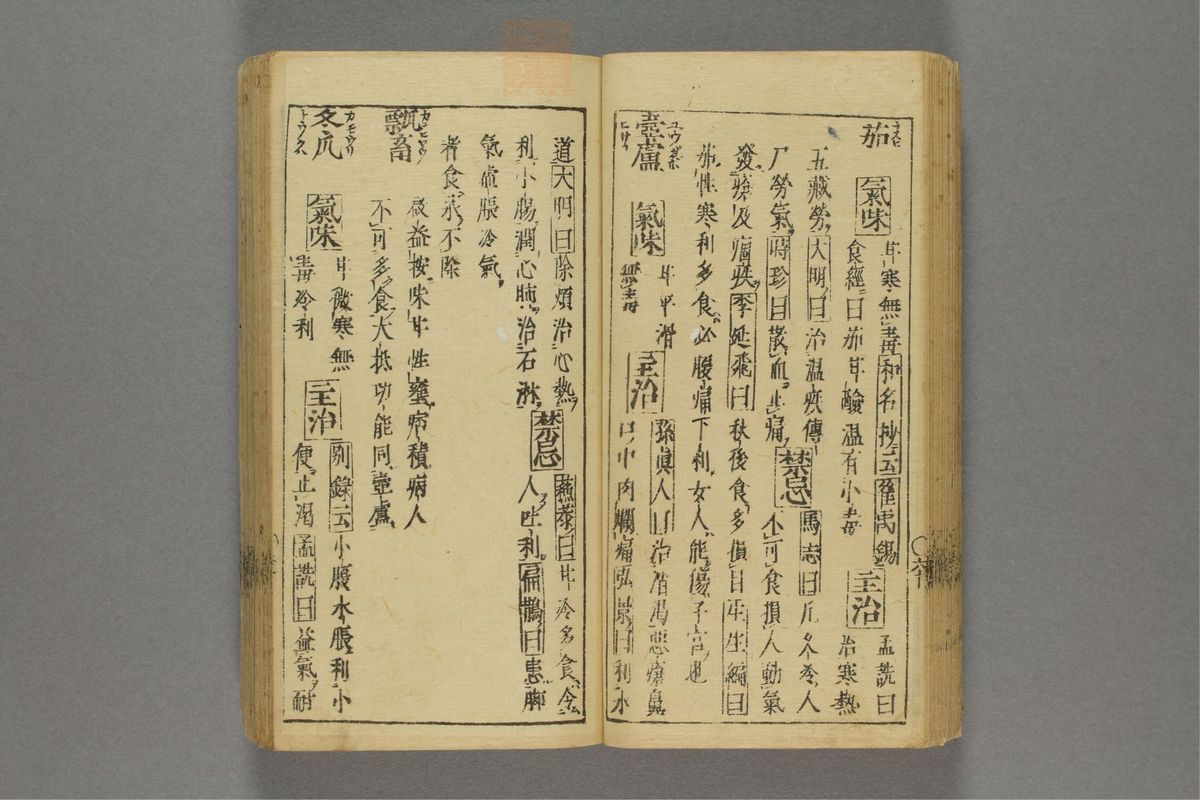 茄 ナスヒ
氣味 甘寒無毒和名抄云崔禹錫
食經曰茄甘酸温有小毒
主治 孟詵曰
治寒熱
五藏勞大明曰治温疾傳
尸勞氣時珍曰散血止痛
禁忌 馬志曰凡久冷人
不可食損人動氣
發瘡及痼疾李廷飛曰秋後食多損目生生編曰
茄性寒利多食必腹痛下利女人能傷子宮也
壺盧
氣味 甘平滑
無毒
主治 孫眞人曰治消渇惡瘡鼻
口中肉爛痛弘景曰利水
道大明曰除煩治心熱
利小腸潤心肺治石淋
禁忌 蘓恭曰甘冷多食令
人吐利扁鵲曰患脚
氣虛脹冷氣
者食永不除
瓢畜
段益按味甘性壅疳積病人
不可多食大抵功能同壺盧
冬瓜 カモウリ
氣味 甘微寒無
毒冷利
主治 別錄云小腹水脹利小
便止渇孟詵曰益氣耐